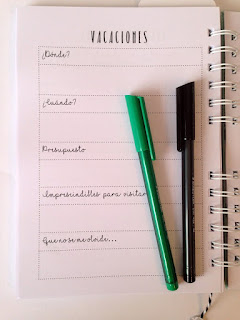 VACACIONES
¿Dónde?
¿Cuándo?
Presupuesto
Imprescindibles para visitar
Que no se me olvide...